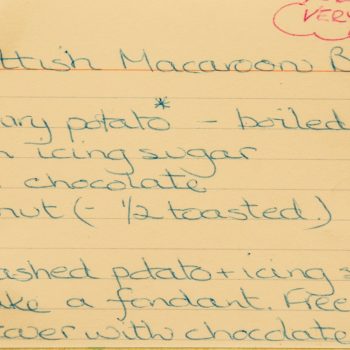 VERY
ttish Macaroon B
ary potato* - boiled
n icing sugar
chocolate
nut (- ½ toasted.)
ashed potato + icing s
ake a fondant. Free
cover with chocolate